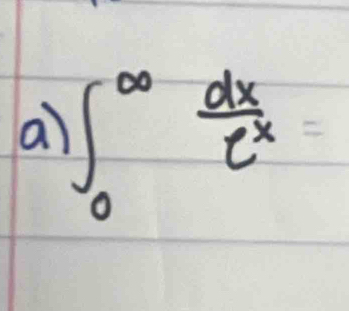 a) ∫₀^∞ dx/e^x =